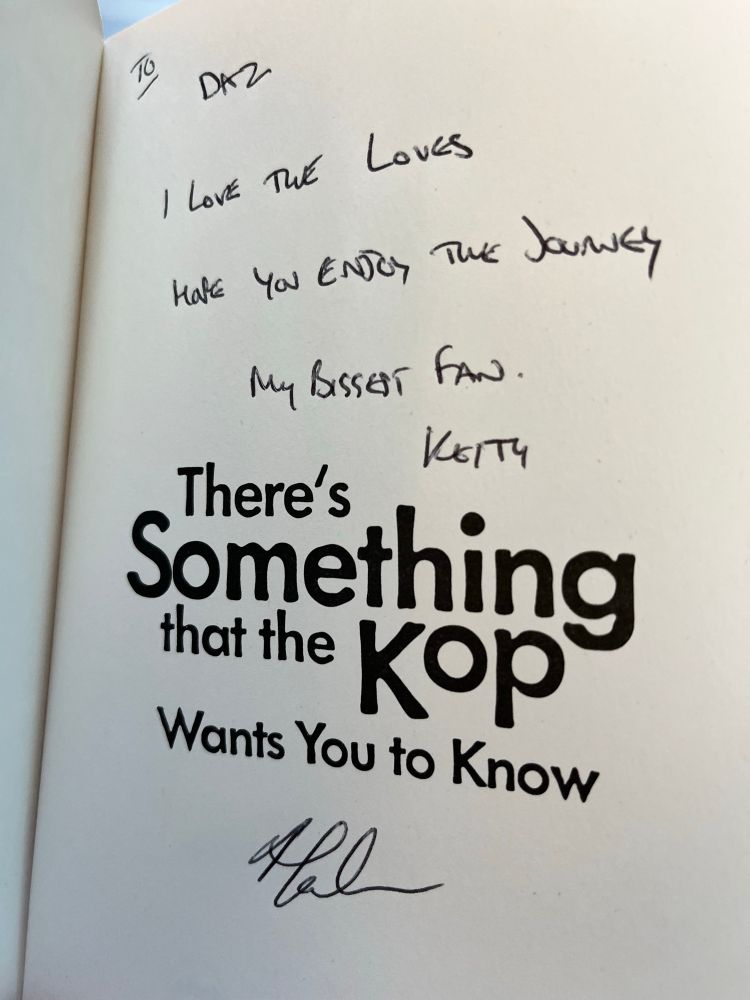 To DAZ
I LOVE THE LOVES
HOPE YOU ENJOY THE JOURNEY
My BIGGEST FAN.
KEITH
There's
Something
that the Kop
Wants You to Know